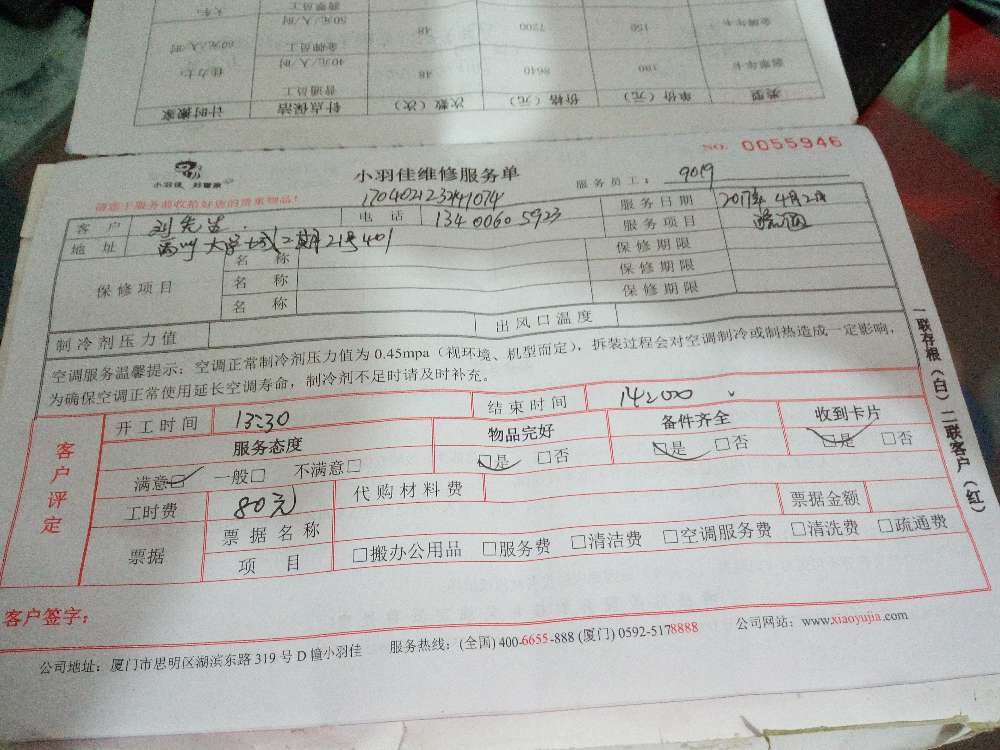 类型 单价（元） 价格（元） 次数（次） 针点保洁 计时搬家
翡翠年卡 180 8640 48 普通员工 40元/人/时 佳力士
金领年卡 150 7200 48 金牌员工 50元/人/时 60元/人/时
NO. 0055946
小羽佳 好管家
小羽佳维修服务单
170402123241074
服务员工： 9019
请您于服务前收拾好您的贵重物品！
客户 刘先生 电话 13400605923 服务日期 2017年4月2日
地址 大学城二期21号401 服务项目
保修项目 名称 保修期限
名称 保修期限
名称 保修期限
制冷剂压力值 出风口温度
空调服务温馨提示：空调正常制冷剂压力值为 0.45mpa（视环境、机型而定），拆装过程会对空调制冷或制热造成一定影响，
为确保空调正常使用延长空调寿命，制冷剂不足时请及时补充。
客户评定
开工时间 13:30 结束时间 14:00
服务态度 物品完好 备件齐全 收到卡片
满意□ 一般□ 不满意□ □是 □否 □是 □否 □是 □否
工时费 80元 代购材料费 票据金额
票据 票据名称
项目 □搬办公用品 □服务费 □清洁费 □空调服务费 □清洗费 □疏通费
客户签字：
公司地址：厦门市思明区湖滨东路 319 号 D 幢小羽佳 服务热线：(全国) 400-6655-888 (厦门) 0592-5178888 公司网站：www.xiaoyujia.com
一联存根（白）二联客户（红）